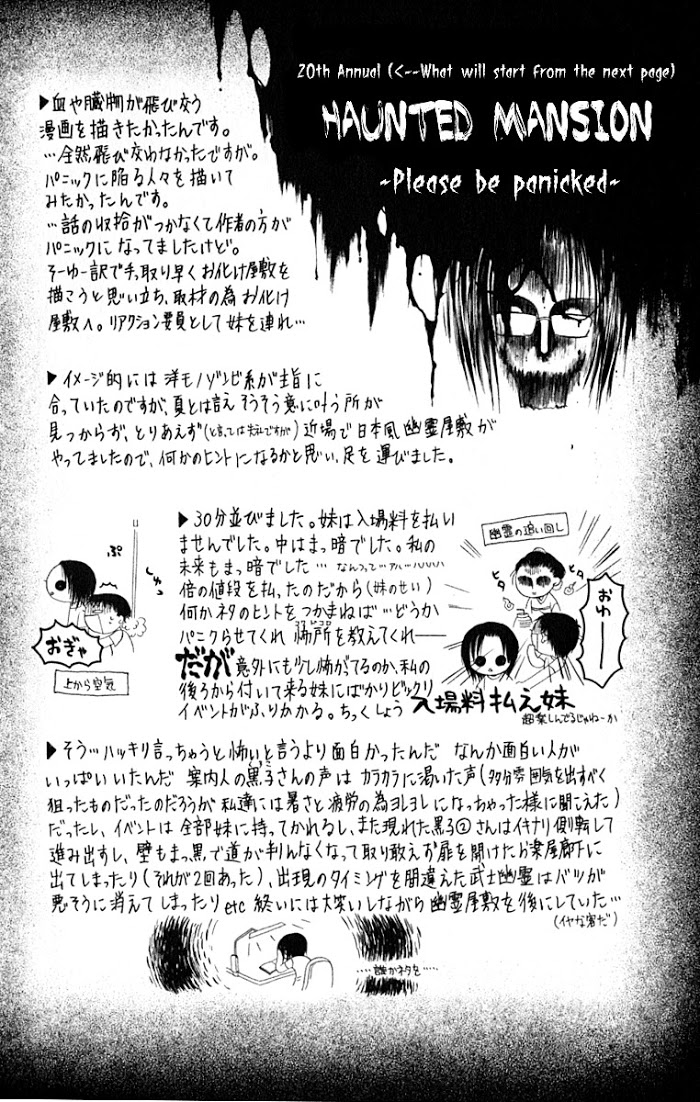 20th Annual (<--What will start from the next page)
HAUNTED MANSION
~Please be panicked~
▶血や臓物が飛び交う
漫画を描きたかったんです。
…全然飛び交わなかったですが。
パニックに陥る人々を描いて
みたかったんです。
…話の収拾がつかなくて作者の方が
パニックになってましたけど。
そーゆー訳で手っ取り早くお化け屋敷を
描こうと思い立ち、取材の為お化け
屋敷へ。リアクション要員として妹を連れ…
▶イメージ的には洋モノゾンビ系が主旨に
合っていたのですが、夏とは言えそうそう意に叶う所が
見つからず、とりあえず(と言っては失礼ですが)近場で日本風幽霊屋敷が
やってましたので、何かのヒントになるかと思い、足を運びました。
▶30分並びました。妹は入場料を払い
ませんでした。中はまっ暗でした。私の
未来もまっ暗でした…
倍の値段を払ったのだから(妹のせい)
何かネタのヒントをつかまねば…どうか
パニクらせてくれ 怖所を教えてくれ――
だが意外にも少し怖がってるのか、私の
後ろから付いて来る妹にばかりビックリ
イベントがふりかかる。ちっくしょう
ぷ
しゅっ
おぎゃ
上から空気
幽霊の追い回し
ヒタ
ヒタ
おゆーー
入場料払え妹
超楽しんでるじゃねーか
▶そう…ハッキリ言っちゃうと怖いと言うより面白かったんだ なんか面白い人が
いっぱいいたんだ 案内人の黒子さんの声はカラカラに渇いた声(多分雰囲気を出すべく
狙ったものだったのだろうが私達には暑さと疲労の為ヨレヨレになっちゃった様に聞こえた)
だったし、イベントは全部妹に持ってかれるし、また現れた黒子②さんはイキナリ側転して
進み出すし、壁もまっ黒で道が判んなくなって取り敢えず扉を開けたら楽屋廊下に
出てしまったり(それが2回あった)、出現のタイミングを間違えた武士幽霊はバツが
悪そうに消えてしまったりetc 終いには大笑いしながら幽霊屋敷を後にしていた…
(イヤな客だ)
……誰かネタを……